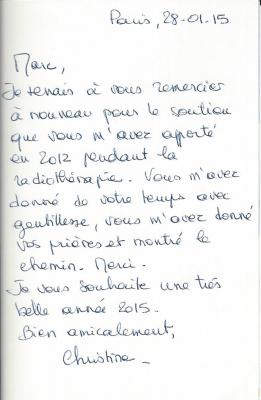 Paris, 28-01.15
Marc,
Je tenais à vous remercier
à nouveau pour le soutien
que vous m'avez apporté
en 2012 pendant la
radiothérapie. Vous m'avez
donné de votre temps avec
gentillesse, vous m'avez donné
vos prières et montré le
chemin. Merci.
Je vous souhaite une très
belle année 2015.
Bien amicalement,
Christine